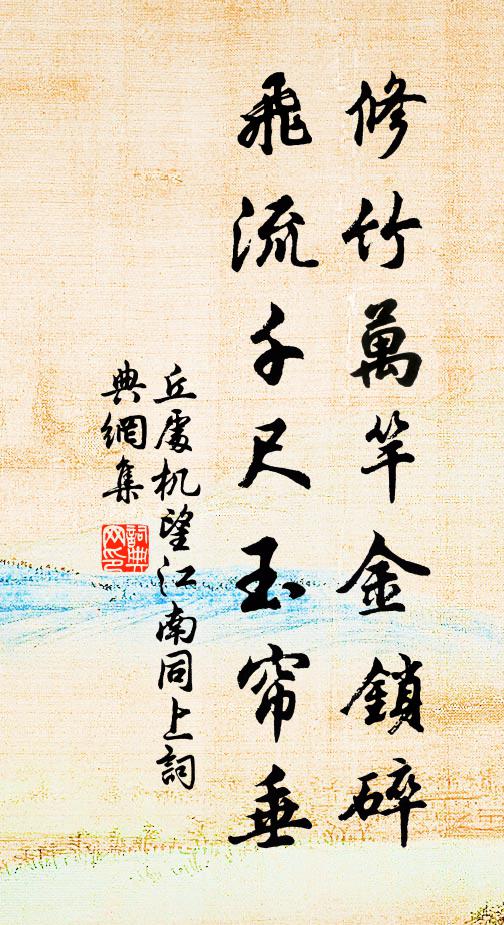 修竹萬竿金鎖碎
飛流千尺玉帘垂
丘處机望江南同上詞
典網集
詞典
网印